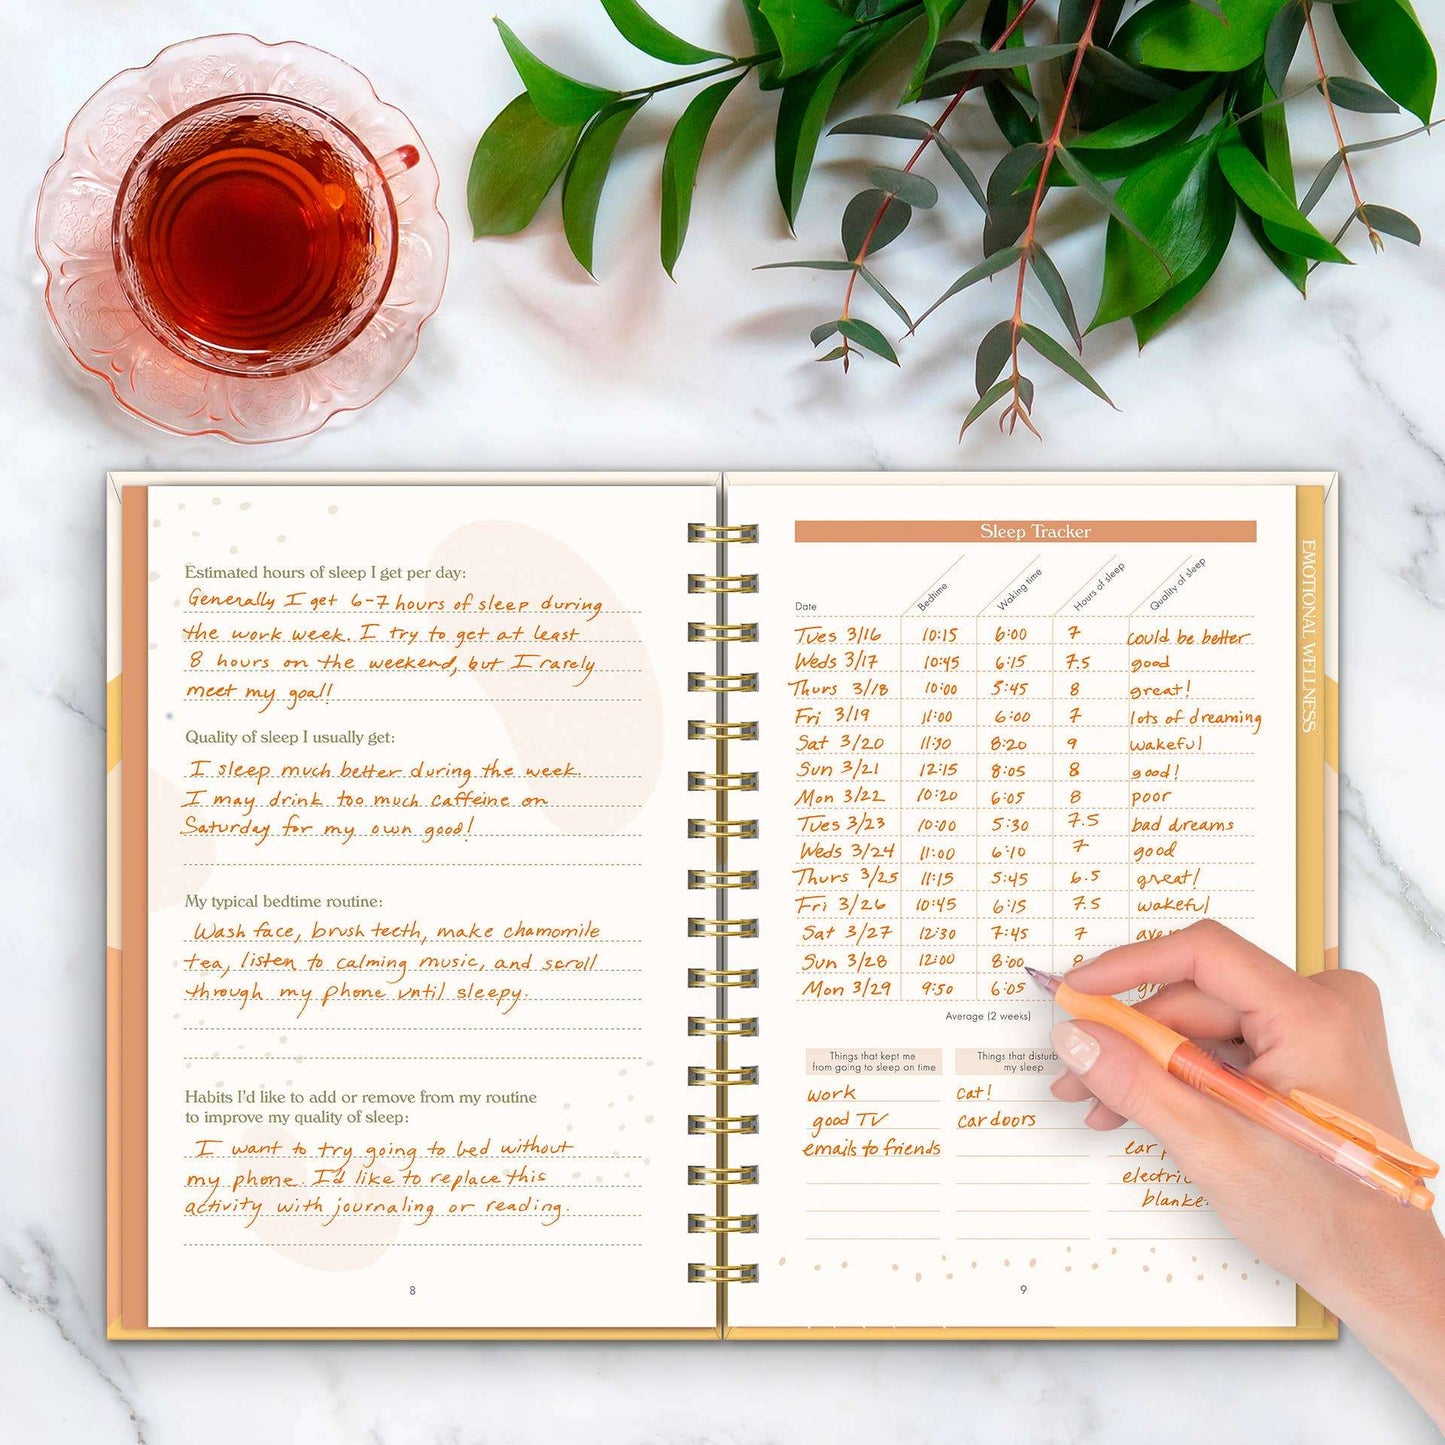 Estimated hours of sleep I get per day:
Generally I get 6-7 hours of sleep during
the work week. I try to get at least
8 hours on the weekend, but I rarely
meet my goal!
Quality of sleep I usually get:
I sleep much better during the week.
I may drink too much caffeine on
Saturday for my own good!
My typical bedtime routine:
Wash face, brush teeth, make chamomile
tea, listen to calming music, and scroll
through my phone until sleepy.
Habits I'd like to add or remove from my routine
to improve my quality of sleep:
I want to try going to bed without
my phone. I'd like to replace this
activity with journaling or reading.
8
Sleep Tracker
Date Bedtime Waking time Hours of sleep Quality of sleep
Tues 3/16 10:15 6:00 7 could be better
Weds 3/17 10:45 6:15 7.5 good
Thurs 3/18 10:00 5:45 8 great!
Fri 3/19 11:00 6:00 7 lots of dreaming
Sat 3/20 11:30 8:20 9 wakeful
Sun 3/21 12:15 8:05 8 good!
Mon 3/22 10:20 6:05 8 poor
Tues 3/23 10:00 5:30 7.5 bad dreams
Weds 3/24 11:00 6:10 7 good
Thurs 3/25 11:15 5:45 6.5 great!
Fri 3/26 10:45 6:15 7.5 wakeful
Sat 3/27 12:30 7:45 7
Sun 3/28 12:00 8:00 8
Mon 3/29 9:50 6:05
Average (2 weeks)
Things that kept me
from going to sleep on time
work
good TV
emails to friends
Things that disturb
my sleep
cat!
car doors
ear
electric
blanke
9
EMOTIONAL WELLNESS